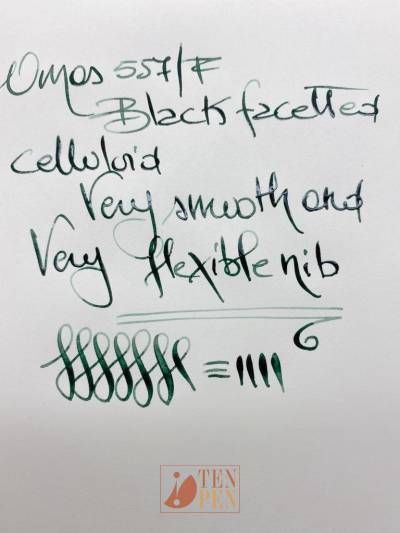 Omas 557/F
Black facetted
celluloid
Very smooth and
Very flexible nib
6
TEN
PEN